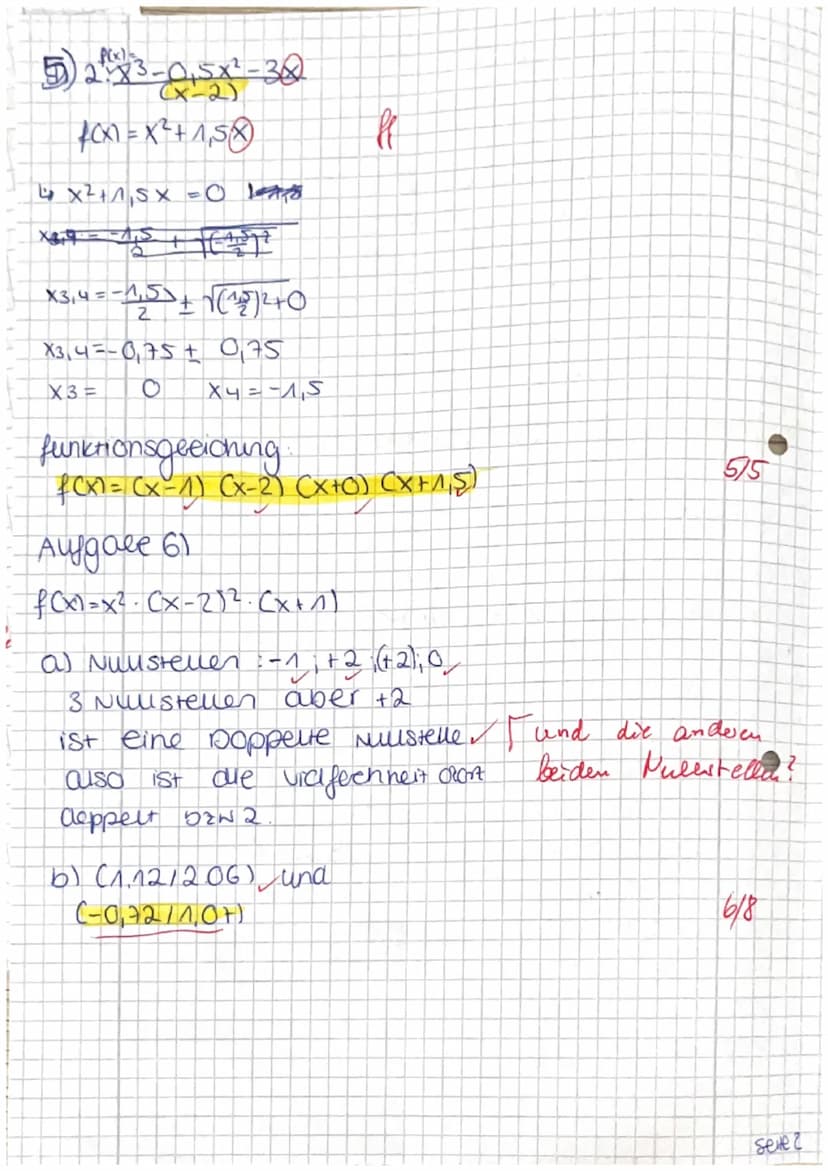 5) 2. f(x)= x3-0,5x²-3x
(x-2)
f(x) = x²+1,5x
ff
↳ x²+1,5x = 0
x3,4 = -1,5/2 + √(-1,5/2)²
x3,4 = -1,5/2 ± √(1,5/2)2+0
x3,4=-0,75 ± 0,75
x3= 0 x4=-1,5
funktionsgleichung:
f(x)= (x-1) (x-2) (x+0) (x+1,5)
5/5
Aufgabe 6)
f(x)=x² · (x-2)² · (x+1)
a) Nullstellen : -1 ; +2 ;(+2); 0
3 Nullstellen aber +2
ist eine Doppelte Nullstelle ✓ und die anderen
also ist die Vielfachheit dort beiden Nullstellen?
doppelt bzw 2.
b) (1,12/2,06) ✓ und
(-0,72/1,07)
6/8
Seite 2